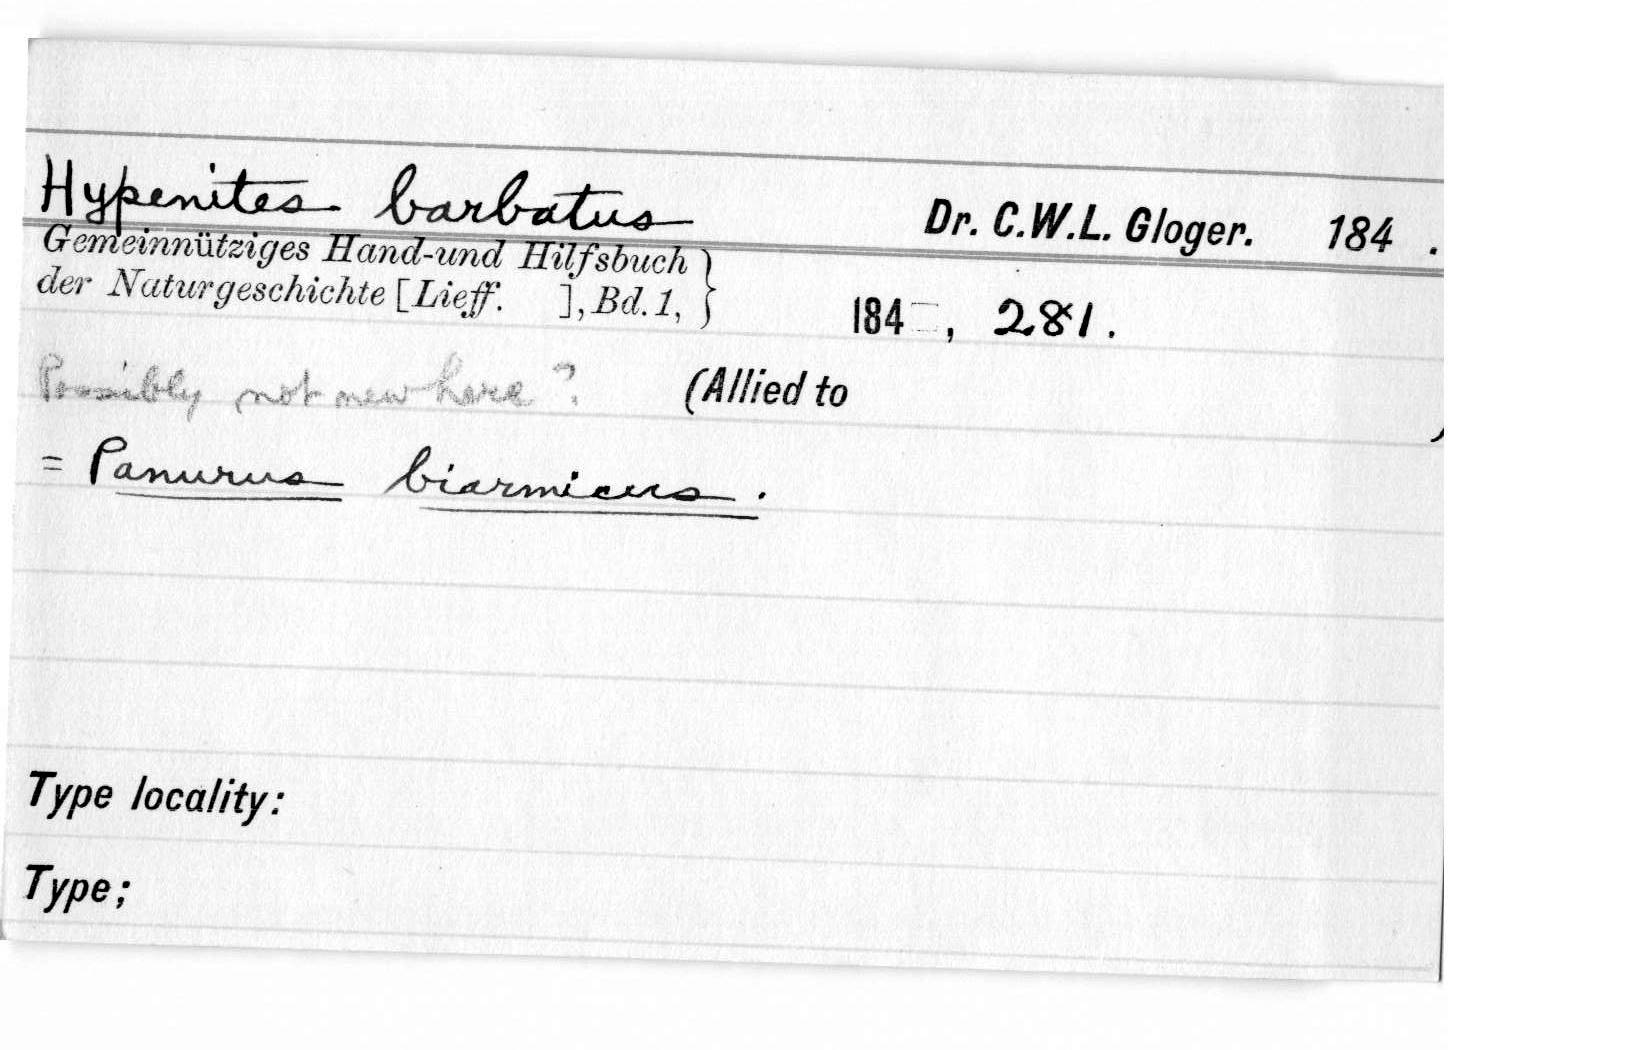 Hypenites barbatus Dr. C.W.L. Gloger. 184 .
Gemeinnütziges Hand-und Hilfsbuch }
der Naturgeschichte [Lieff. ], Bd. 1, 184 , 281.
Possibly not new here? (Allied to )
= Panurus biarmicus.
Type locality:
Type;